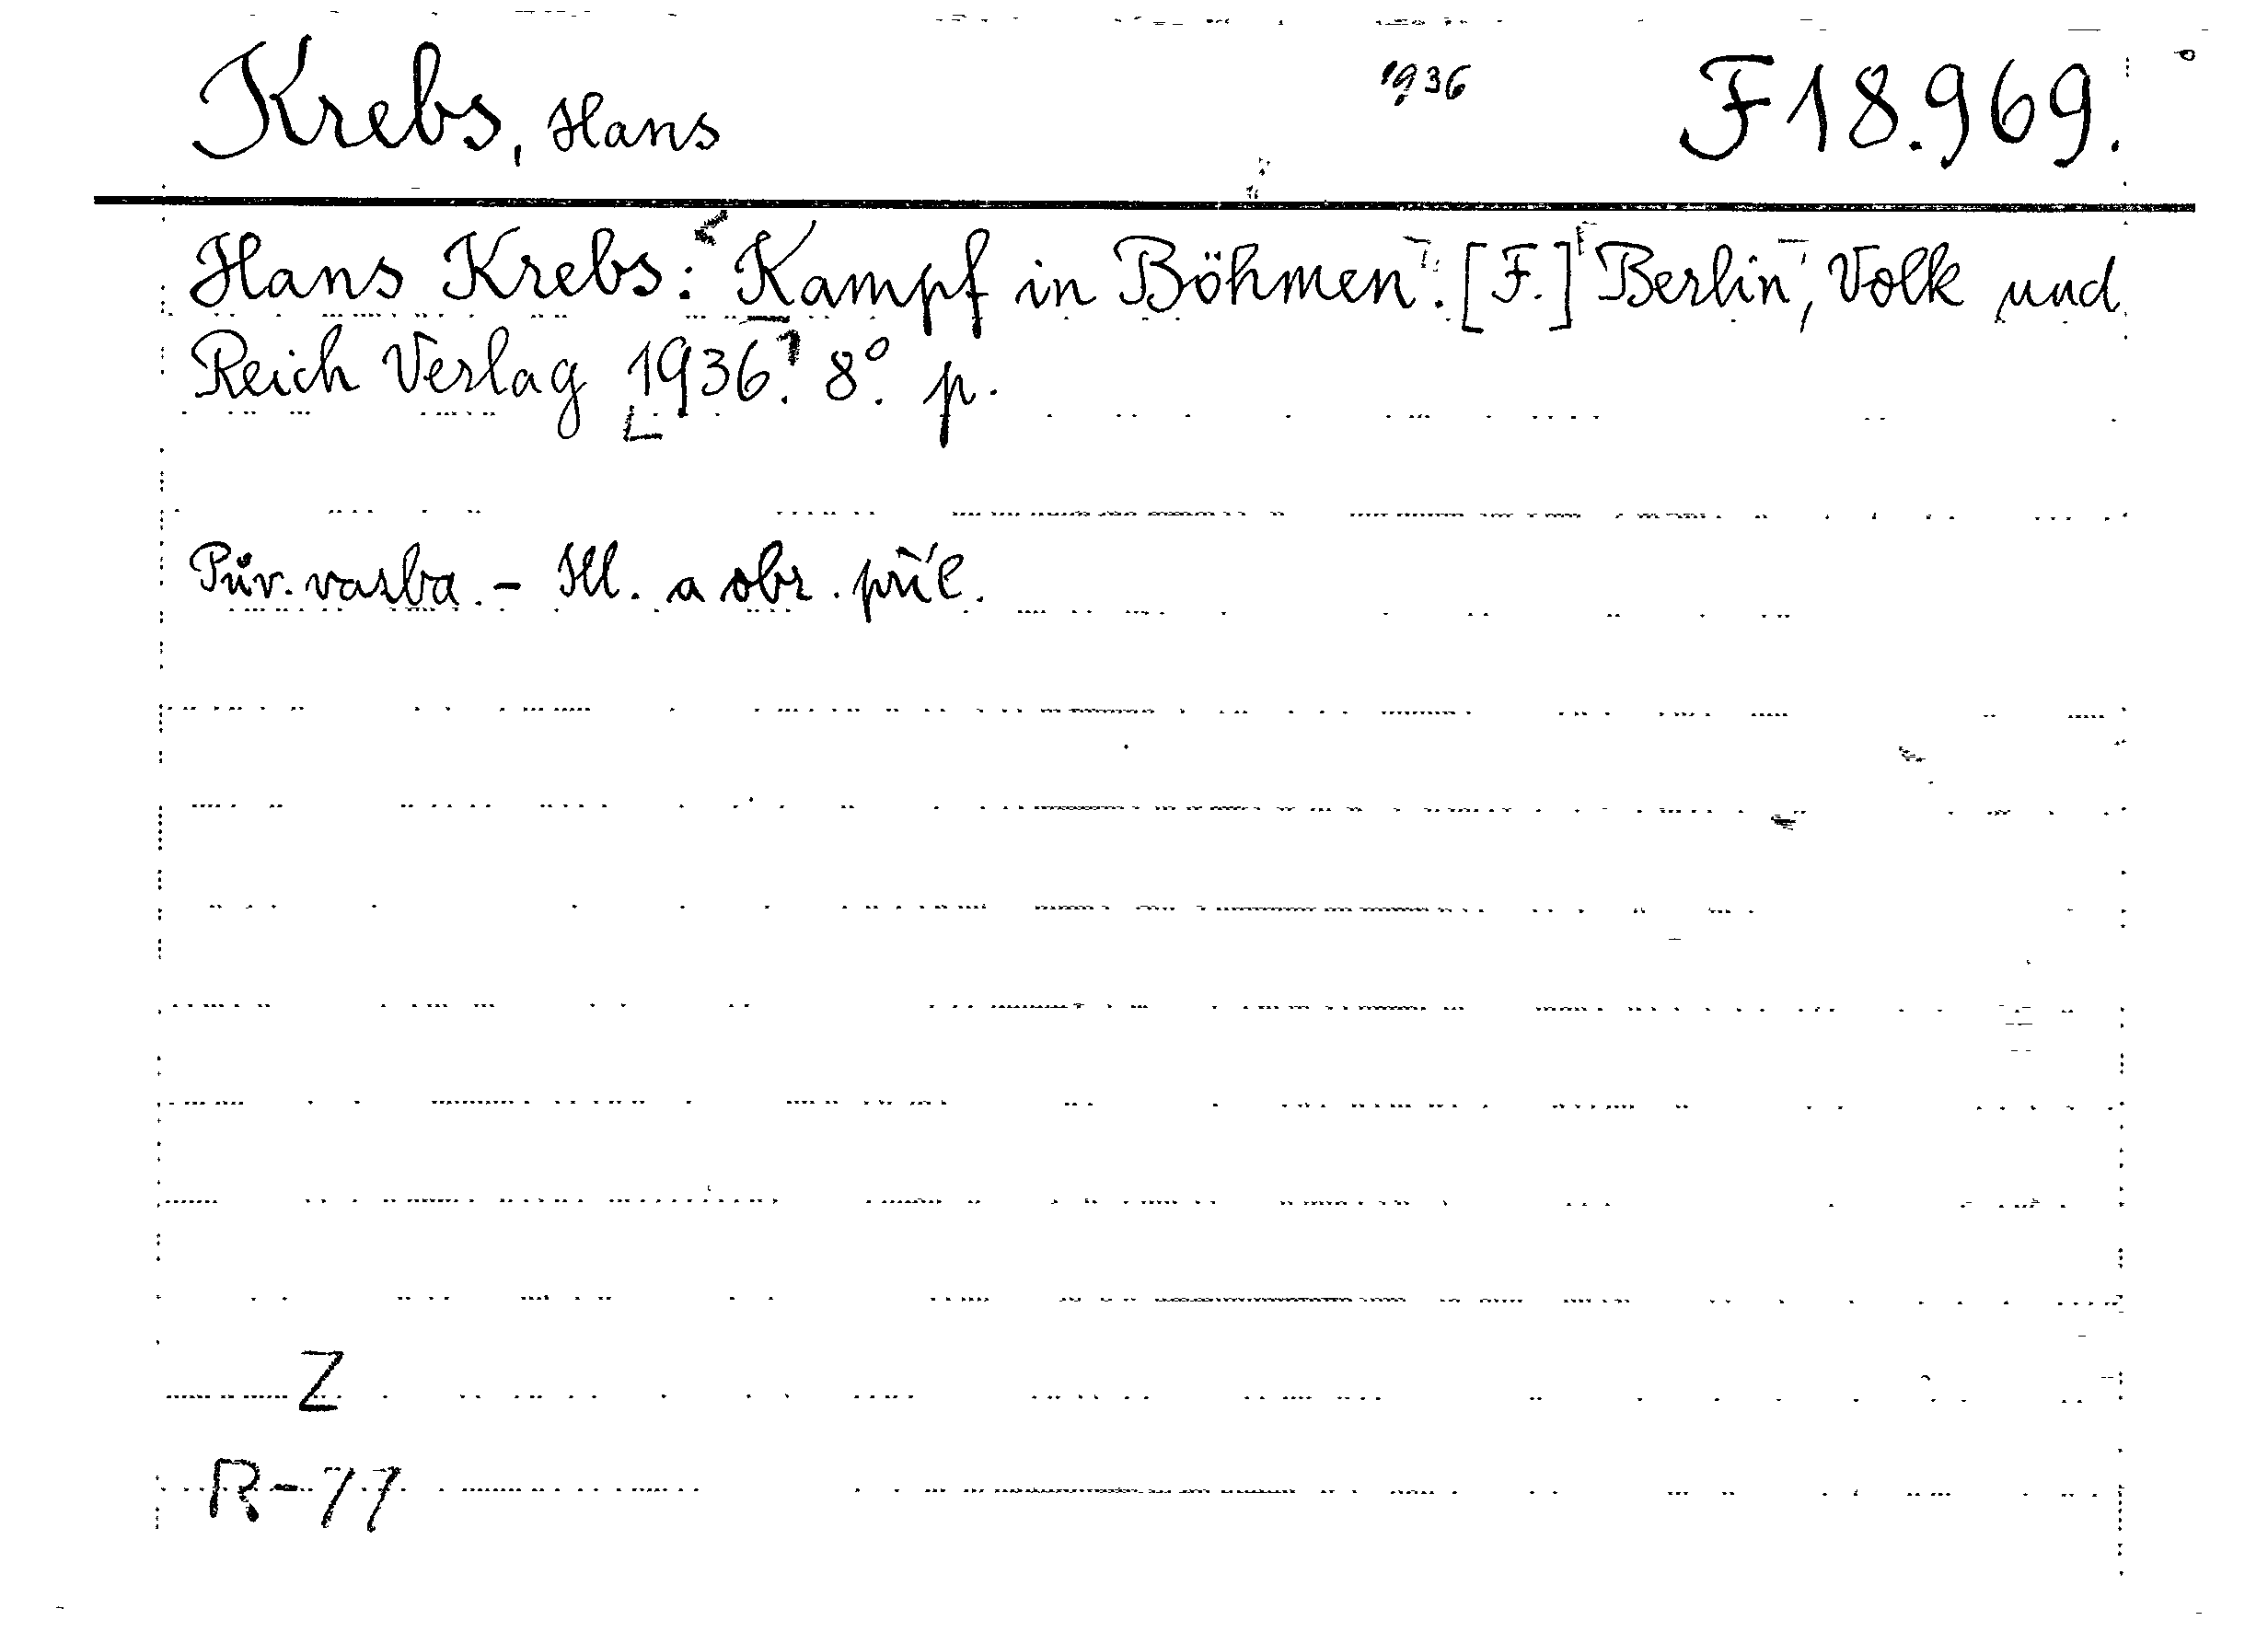 Krebs, Hans 1936 F 18.969.
Hans Krebs: Kampf in Böhmen. [F.] Berlin, Volk und
Reich Verlag 1936. 8°. p.
Pův. vazba. - Ill. a obr. příl.
Z
R-77